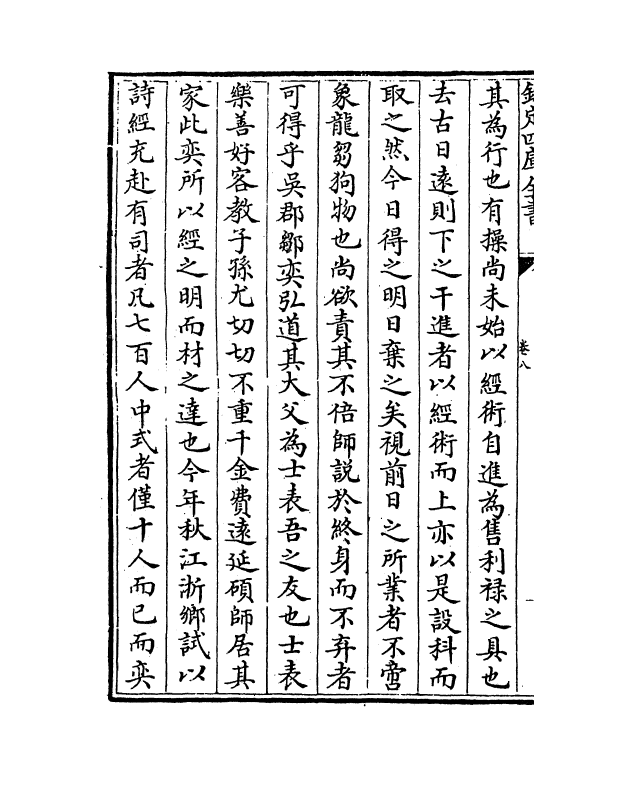 欽定四庫全書
卷八
其為行也有操尚未始以經術自進為售利禄之具也
去古日逺則下之干進者以經術而上亦以是設科而
取之然今日得之明日棄之矣視前日之所業者不啻
象龍芻狗物也尚欲責其不倍師説於終身而不弃者
可得乎吳郡鄒奕弘道其大父為士表吾之友也士表
樂善好客教子孫尤切切不重千金費逺延碩師居其
家此奕所以經之明而材之達也今年秋江浙鄉試以
詩經充赴有司者凡七百人中式者僅十人而已而奕